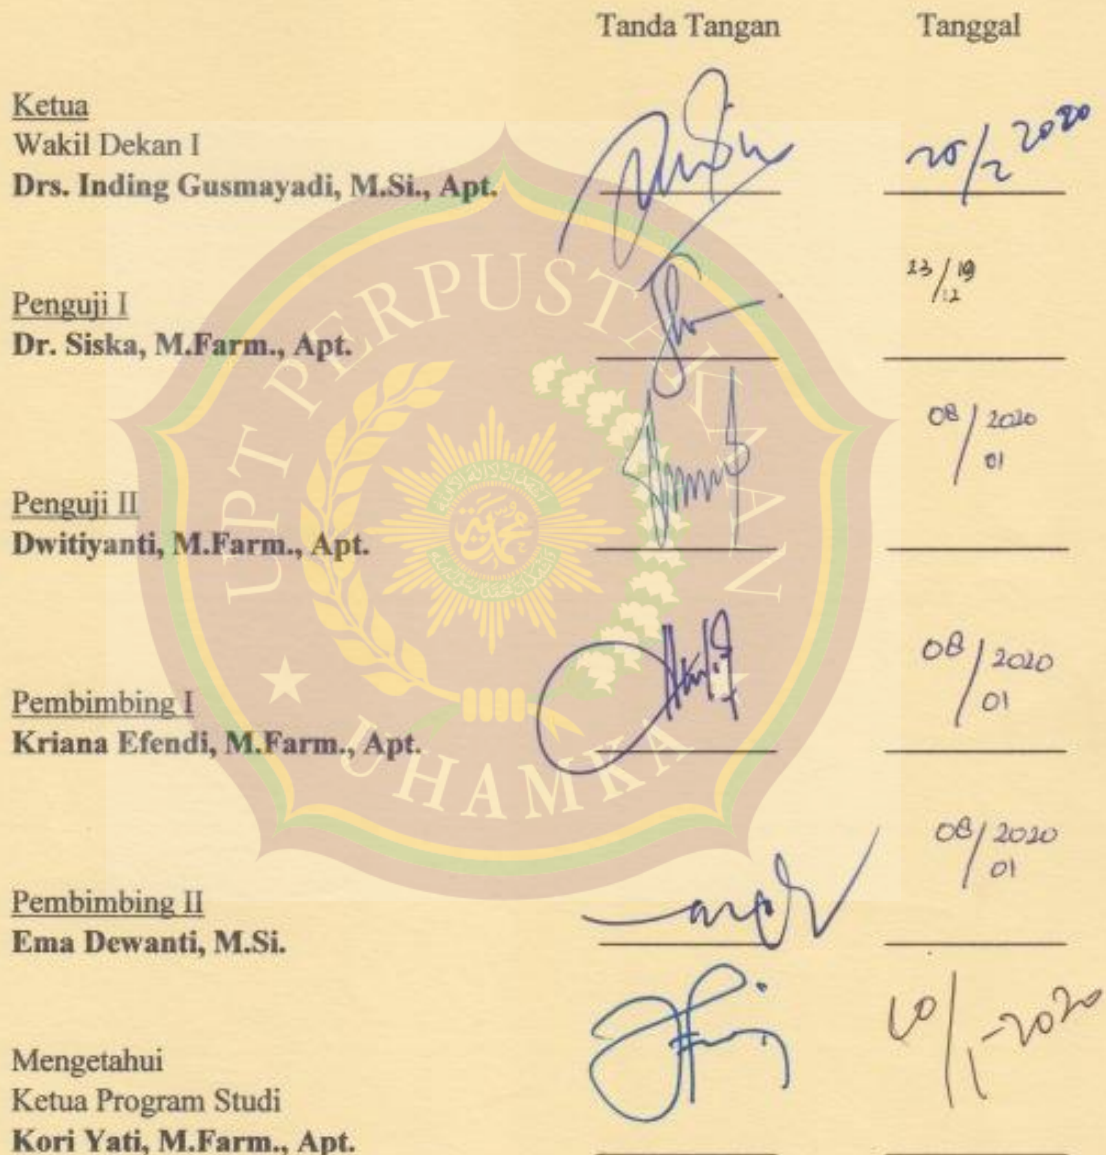 Tanda Tangan Tanggal
Ketua
Wakil Dekan I
Drs. Inding Gusmayadi, M.Si., Apt.
25/2 2020
Penguji I
Dr. Siska, M.Farm., Apt.
23/12 19
Penguji II
Dwitiyanti, M.Farm., Apt.
08/01 2020
Pembimbing I
Kriana Efendi, M.Farm., Apt.
08/01 2020
Pembimbing II
Ema Dewanti, M.Si.
08/01 2020
Mengetahui
Ketua Program Studi
Kori Yati, M.Farm., Apt.
/1-2020
UPT PERPUSTAKAAN
UHAMKA